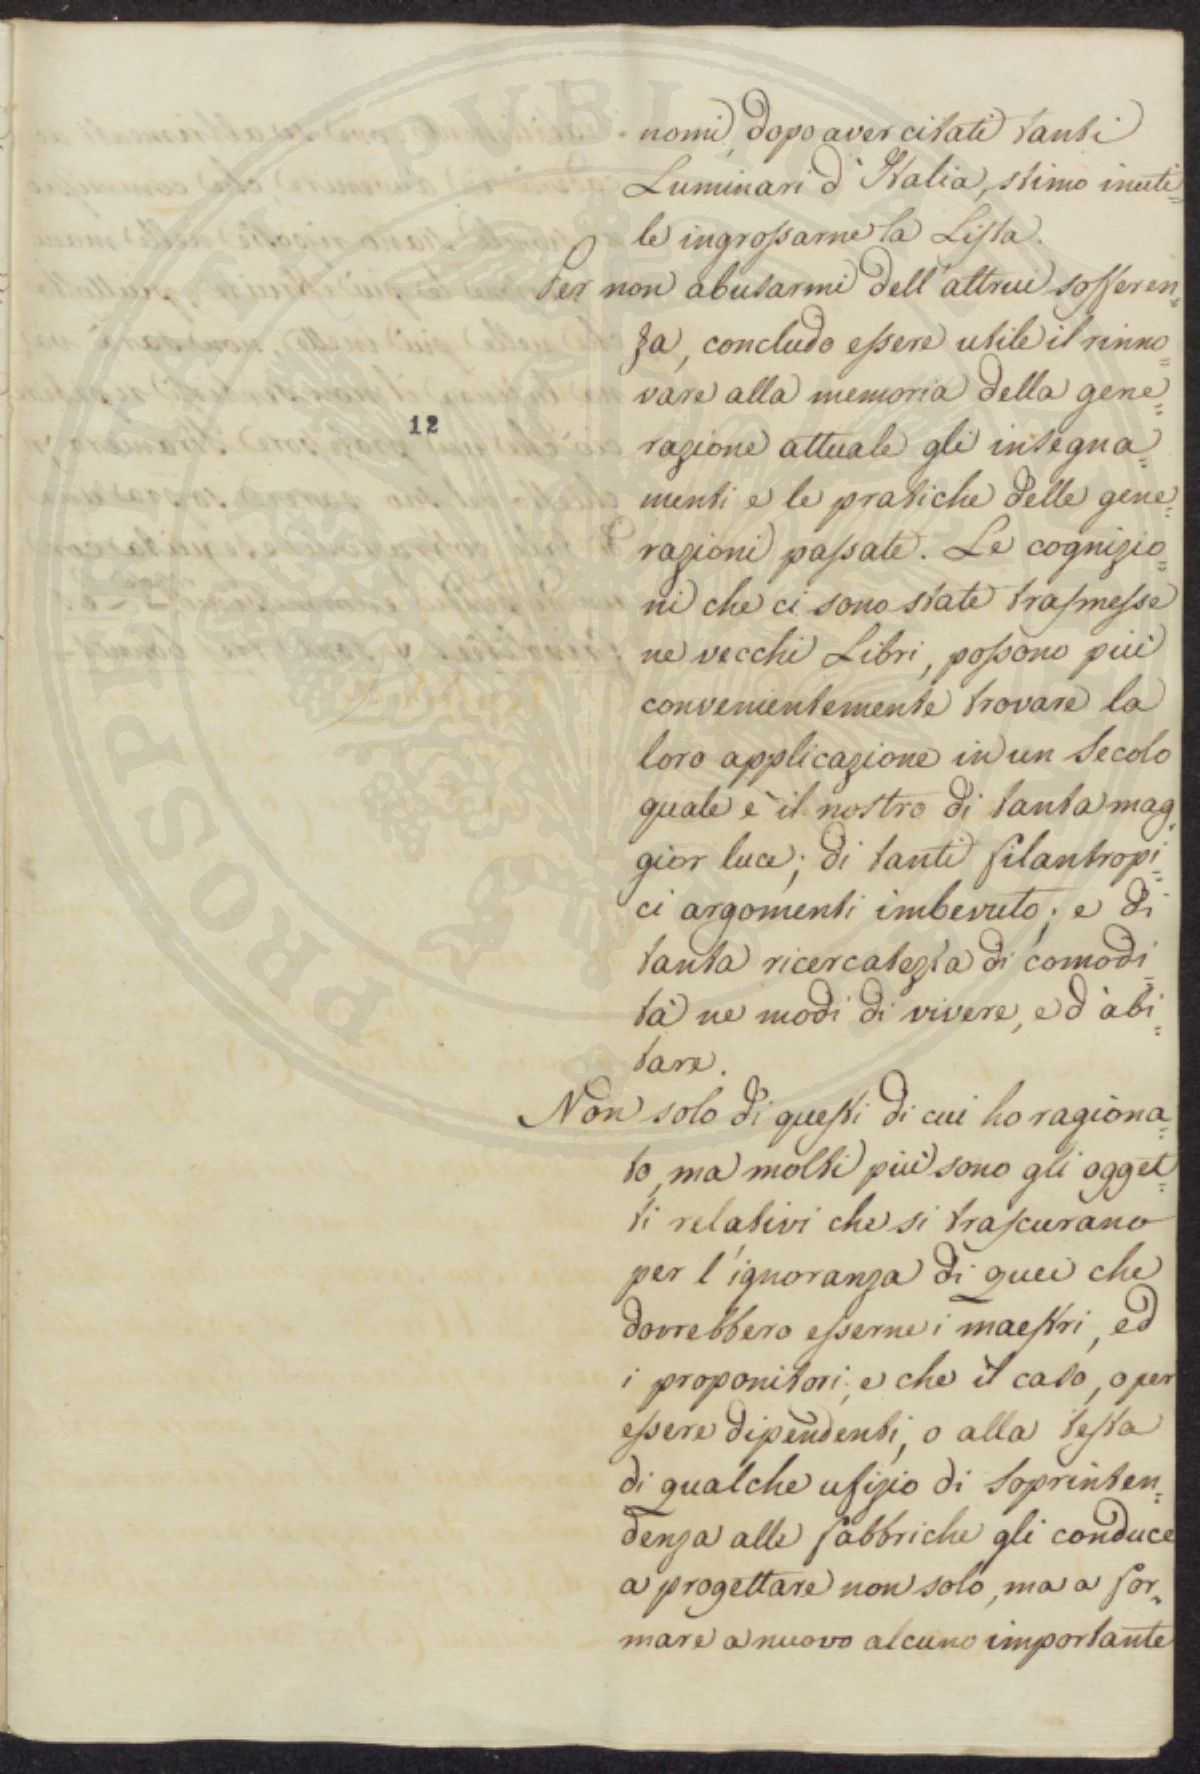 nomi, dopo aver citati tanti
Luminari d'Italia, stimo inuti=
le ingrossarne la Lista.
Per non abusarmi dell'altrui sofferen=
za, concludo essere utile il rinno=
vare alla memoria della gene=
12
razione attuale gli insegna=
menti e le pratiche delle gene=
razioni passate. Le cognizio=
ni che ci sono state trasmesse
ne vecchi Libri, possono più
convenientemente trovare la
loro applicazione in un Secolo
quale è il nostro di tanta mag=
gior luce; di tanti filantropi=
ci argomenti imbevuto; e di
tanta ricercatezza di comodi=
tà ne modi di vivere, e d'abi=
tare.
Non solo di questi di cui ho ragiona=
to, ma molti più sono gli ogget=
ti relativi che si trascurano
per l'ignoranza di quei che
dovrebbero esserne i maestri, ed
i proponitori; e che il caso, o per
essere dipendenti, o alla testa
di qualche ufizio di Soprinten=
denza alle fabbriche gli conduce
a progettare non solo, ma a for=
mare a nuovo alcuno importante